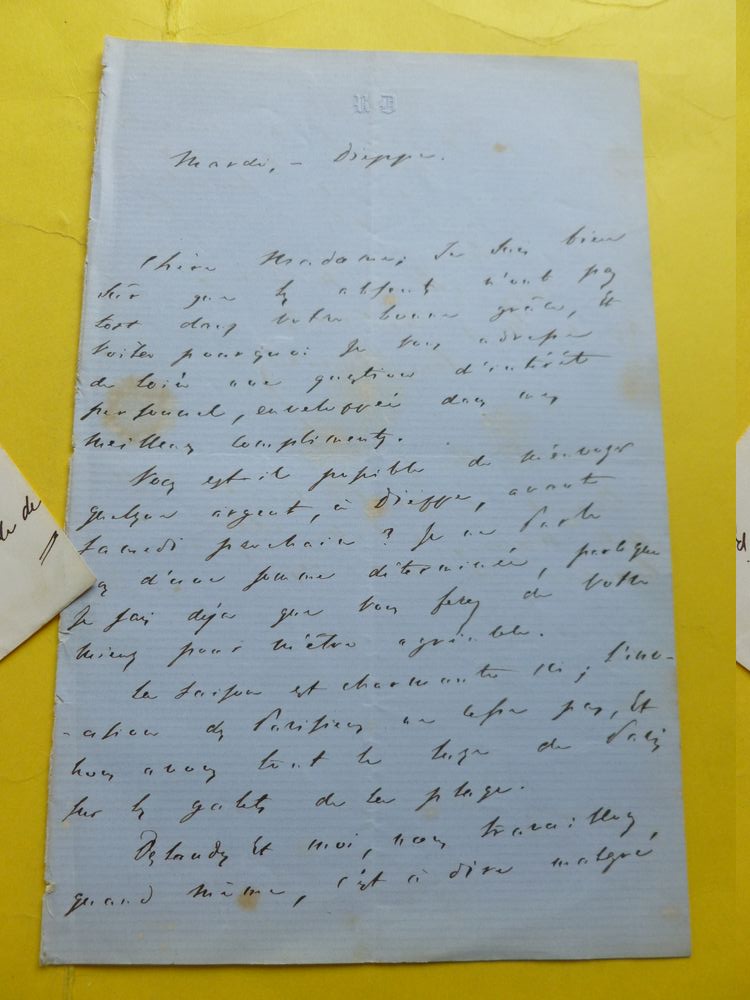 Mardi, - Dieppe.
Chère Madame, Je suis bien
sûr que les absents n'ont pas
tort dans votre bonne grâce, Et
voilà pourquoi Je vous adresse
de loin une question d'intérêt
personnel, enveloppée dans mes
meilleurs compliments.
Vous est-il possible de m'envoyer
quelque argent, à Dieppe, avant
Samedi prochain ? Je ne parle
pas d'une somme déterminée, parce que
Je sais déjà que vous ferez de votre
mieux pour m'être agréable.
La saison est charmante ici ; l'inv-
-asion des Parisiens ne cesse pas, Et
nous avons tout le luxe de Paris
sur les galets de la plage.
Deslandes Et moi, nous travaillons,
quand même, c'est à dire malgré
de de